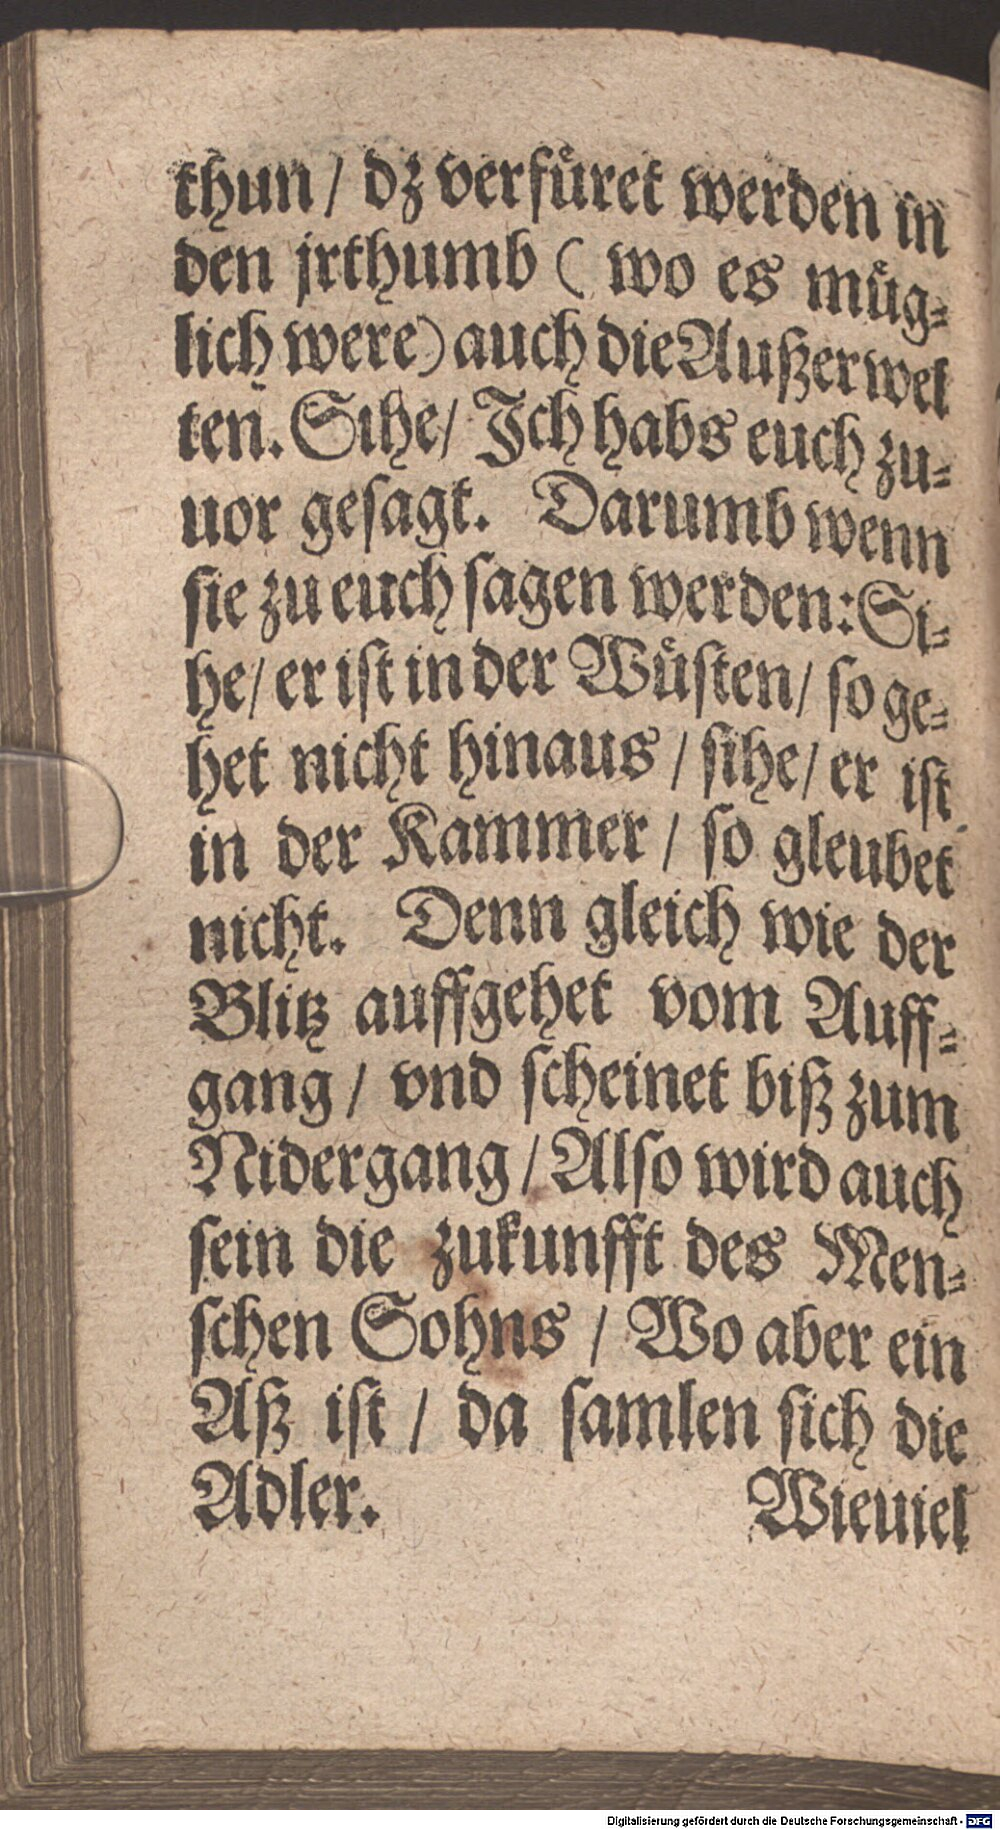 thun / dz verfuͤret werden in
den jrthumb ( wo es muͤg⸗
lich were) auch die Außerwel
ten. Sihe/ Ich habs euch zu⸗
uor gesagt. Darumb wenn
sie zu euch sagen werden: Si⸗
he/ er ist in der Wuͤsten/ so ge⸗
het nicht hinaus / sihe/ er ist
in der Kammer / so gleubet
nicht. Denn gleich wie der
Blitz auffgehet vom Auff⸗
gang / vnd scheinet biß zum
Nidergang / Also wird auch
sein die zukunfft des Men⸗
schen Sohns / Wo aber ein
Aß ist / da samlen sich die
Adler. Wieuiel
Digitalisierung gefördert durch die Deutsche Forschungsgemeinschaft - DFG